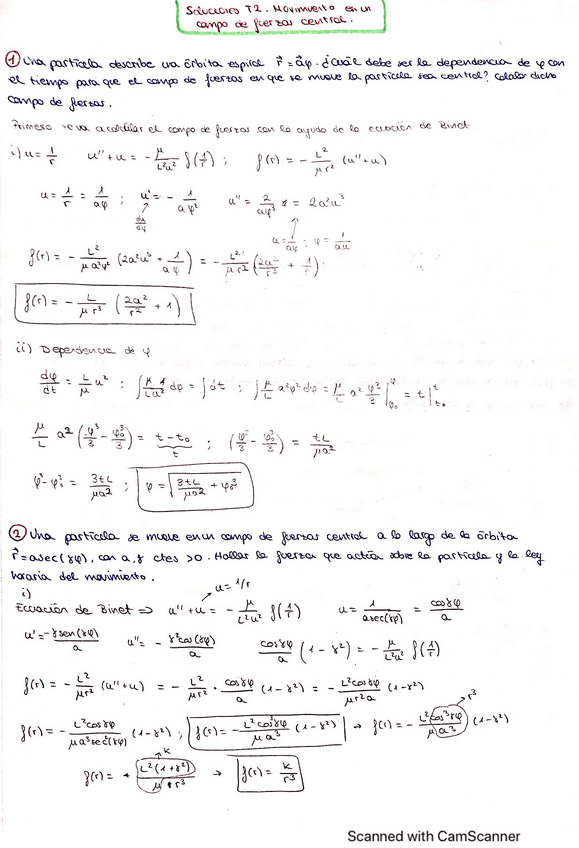 Soluciones T2. Movimiento en un
campo de fuerzas central.
① Una partícula describe una órbita espiral r⃗ = a⃗φ. ¿Cuál debe ser la dependencia de φ con
el tiempo para que el campo de fuerzas en que se mueve la partícula sea central? Calcular dicho
campo de fuerzas.
Primero se va a calcular el campo de fuerzas con la ayuda de la ecuación de Binet.
i) u = 1/r u'' + u = - μ/L²u² f(1/r) ; f(r) = - L²/μr² (u''+u)
u = 1/r = 1/aφ ; u' = - 1/aφ² u'' = 2/aφ³ = 2a²u³
du/dφ
u = 1/aφ ; φ = 1/au
f(r) = - L²/μa²φ² (2a²u³ + 1/aφ) = - L²/μr² (2a²/r³ + 1/r)
f(r) = - L/μr³ (2a²/r² + 1)
ii) Dependencia de φ
dφ/dt = L/μ u² ; ∫ μ/L 1/u² dφ = ∫dt ; ∫ μ/L a²φ²dφ = μ/L a² φ³/3 |φ φ₀ = t |t t₀
μ/L a² (φ³/3 - φ₀³/3) = t - t₀ ; (φ³/3 - φ₀³/3) = tL/μa²
t
φ³ - φ₀³ = 3tL/μa² ; φ = √3tL/μa² + φ₀³
② Una partícula se mueve en un campo de fuerzas central a lo largo de la órbita
r⃗ = asec(γφ), con a, γ ctes > 0. Hallar la fuerza que actúa sobre la partícula y la ley
horaria del movimiento.
i)
u = 1/r
Ecuación de Binet => u'' + u = - μ/L²u² f(1/r) u = 1/asec(γφ) = cosγφ/a
u' = -γsen(γφ)/a u'' = - γ²cos(γφ)/a cosγφ/a (1 - γ²) = - μ/L²u² f(1/r)
f(r) = - L²/μr² (u''+u) = - L²/μr² · cosγφ/a (1 - γ²) = - L²cosγφ/μr²a (1-γ²)
r³
f(r) = - L²cosγφ/μa³sec²(γφ) (1-γ²) ; f(r) = - L²cos³γφ/μa³ (1-γ²) → f(r) = - L²cos³γφ/μa³ (1-γ²)
k
f(r) = + L²(1+γ²)/μ r³ → f(r) = k/r³
Scanned with CamScanner